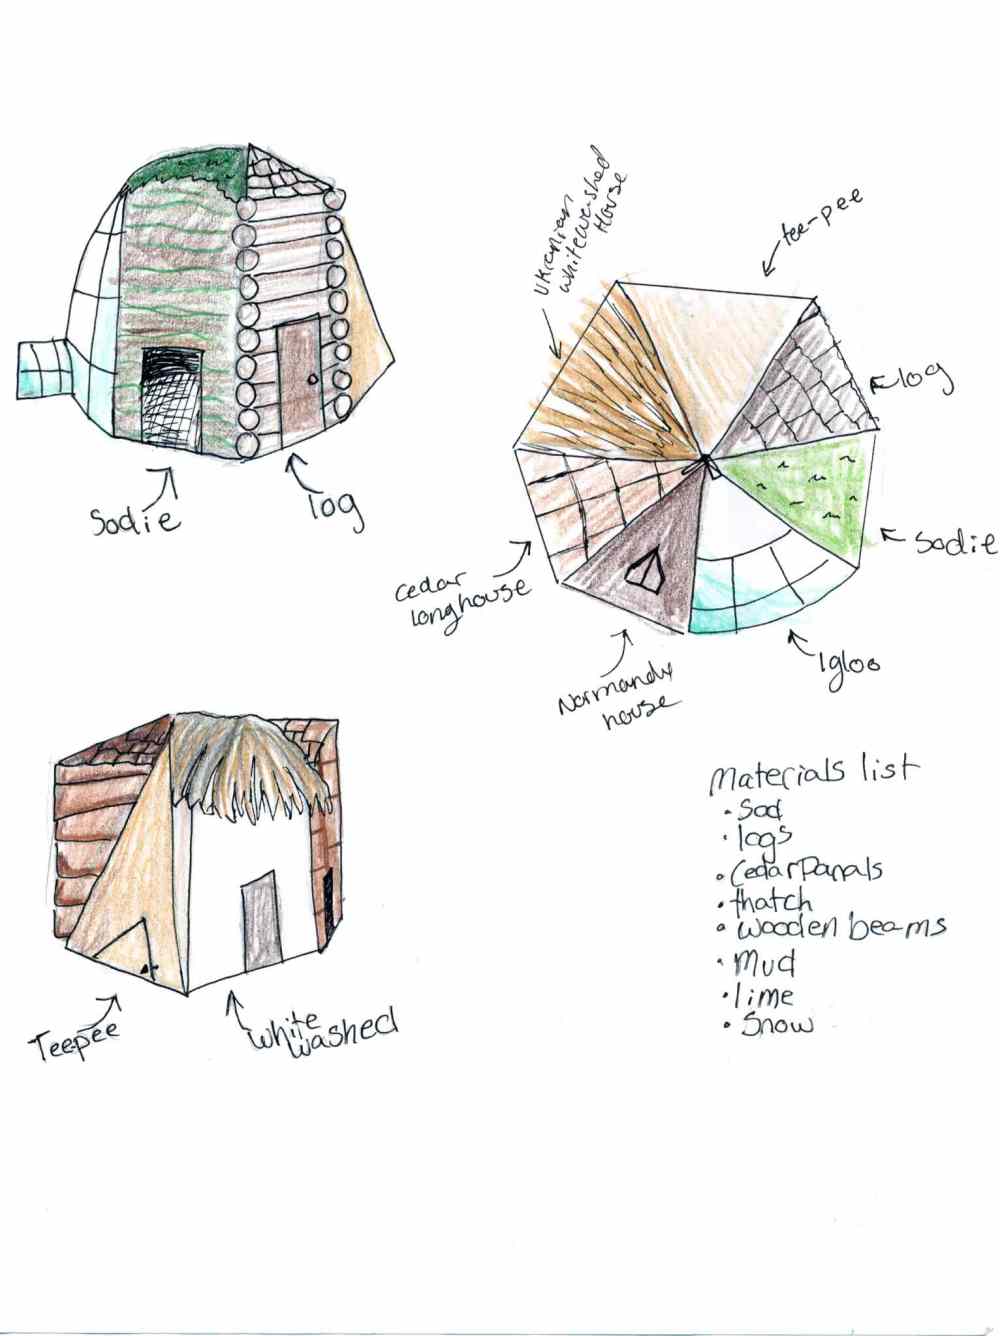 Sodie
log
Ukranian
whitewashed
House
tee-pee
log
Sodie
Igloo
Normandy
house
cedar
longhouse
Teepee
white
washed
Materials list
• Sod
• logs
• CedarPanals
• thatch
• wooden beams
• Mud
• lime
• Snow